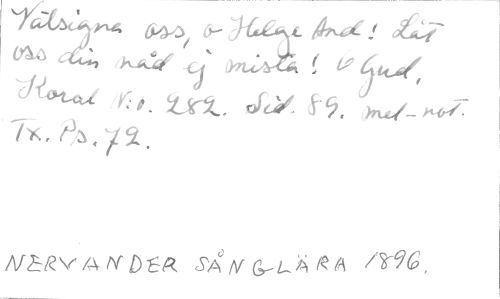 Välsigna oss, o Helge And! Låt
oss din nåd ej mista! O Gud,
Koral N:o. 282. Sid. 89. mel-not.
Tx. Ps. 72.
NERVANDER SÅNGLÄRA 1896.